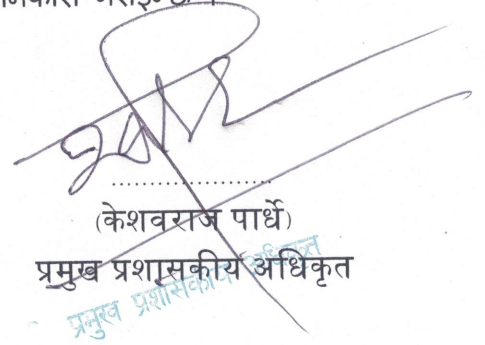 (केशवराज पार्धे)
प्रमुख प्रशासकीय अधिकृत
प्रमुख प्रशासकीय अधिकृत